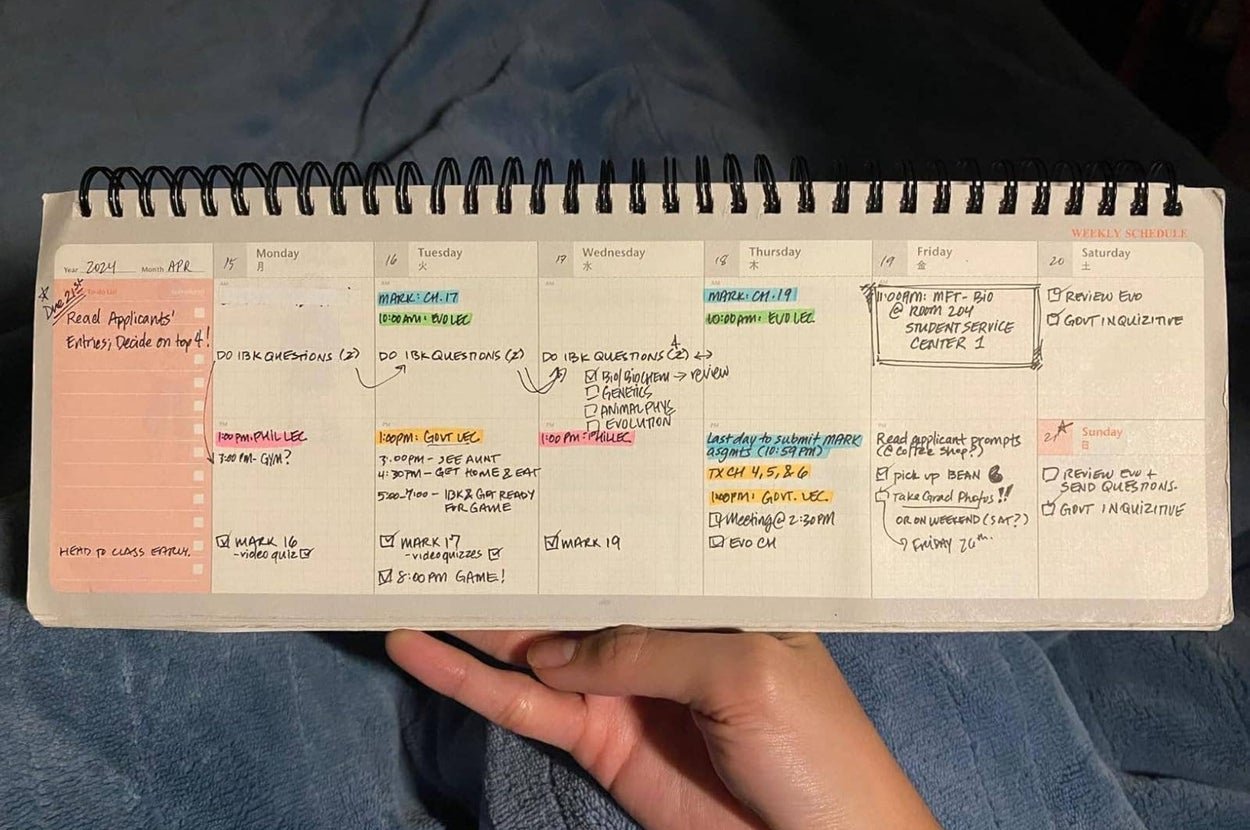 WEEKLY SCHEDULE
Year 2024 Month APR
Due 21st
To do List
Read Applicants'
Entries; Decide on top 4!
HEAD TO CLASS EARLY.
15 Monday
月
AM
DO IBK QUESTIONS (2)
PM
1:00 PM: PHIL LEC
3:00 PM - GYM?
MARK 16
- video quiz
16 Tuesday
火
AM
MARK: CH. 17
10:00 AM: EVO LEC
DO IBK QUESTIONS (2)
PM
1:00PM: GOVT LEC
3:00PM - SEE AUNT
4:30PM - GET HOME & EAT
5:00-7:00 - IBK & GET READY
FOR GAME
MARK 17
- video quizzes
8:00PM GAME!
17 Wednesday
水
AM
4
DO IBK QUESTIONS (2)
BIO/BIOCHEM → review
GENETICS
ANIMAL PHYS
EVOLUTION
PM
1:00 PM: PHIL LEC
MARK 19
18 Thursday
木
AM
MARK: CH. 19
10:00 AM: EVO LEC
Last day to submit MARK
asgmts (10:59 PM)
TX CH 4, 5, & 6
1:00PM: GOVT. LEC
Meeting @ 2:30PM
EVO CH
19 Friday
金
11:00AM: MFT-BIO
@ ROOM 204
STUDENT SERVICE
CENTER 1
PM
Read applicant prompts
(@ coffee shop?)
pick up BEAN
Take Grad Photos!!
OR ON WEEKEND (SAT?)
FRIDAY 26th.
20 Saturday
土
REVIEW EVO
GOVT INQUIZITIVE
21 Sunday
日
REVIEW EVO +
SEND QUESTIONS.
GOVT INQUIZITIVE